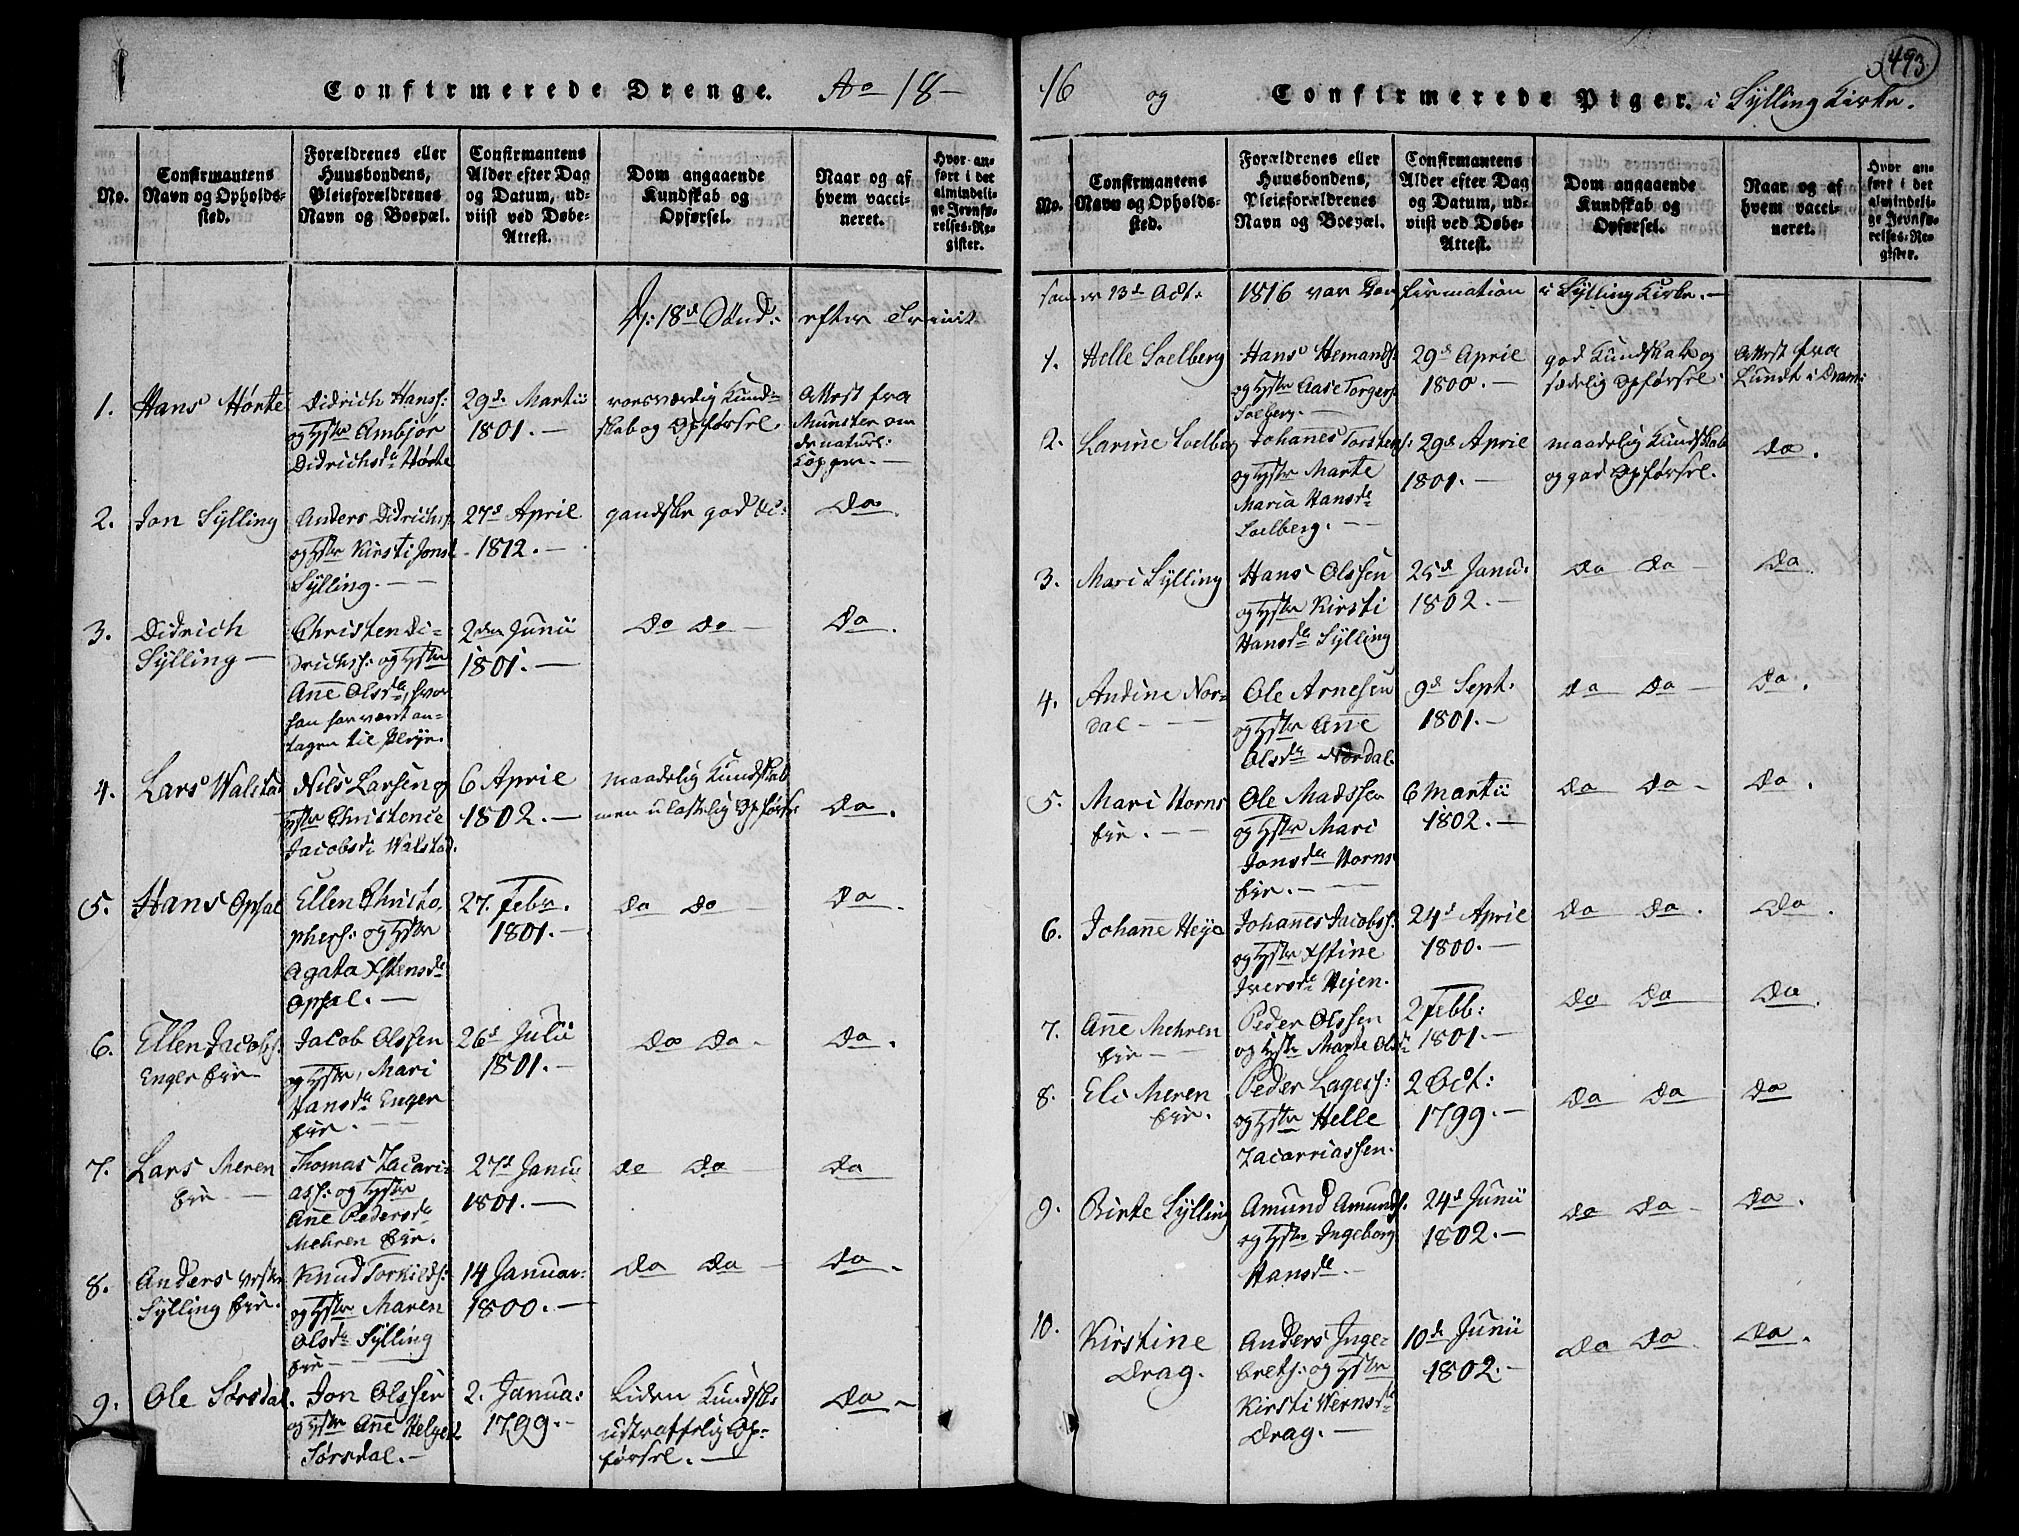 Confirmerede Drenge. Ao 18-
No.
Confirmantens
Navn og Opholds-
sted.
Forældrenes eller
Huusbondens,
Pleieforældrenes
Navn og Boepæl.
Confirmantens
Alder efter Dag
og Datum, ud-
viist ved Døbe-
Attest.
Dom angaaende
Kundskab og
Opførsel.
Naar og af
hvem vacci-
neret.
Hvor an-
ført i det
almindeli-
ge Jevnfø-
relses-Re-
gister.
D: 18d Sønd: efter Trinit
1. Hans Hørte
Didrich Hanss:
og Hstr Ambjør
Didrichsdr Hørte
29de Martii
1801. —
roesværdig Kund-
skab og Opførsel.
Attest fra
Munster om
de naturl:
Kopper. —
2. Jon Sylling
Anders Didrichs:
og Hstr Kirsti Jonsd
Sylling. —
27d April
1812. —
gandske god &c:
Do.
3. Didrich
Sylling —
Christen Di-
drichss: og Hstr
Ane Olsdr, hvor
han har været an-
tagen til Pleje.
2den Junii
1801. —
Do Do —
Do.
4. Lars Walstad
Nils Larsen og
Hstr Christence
Jacobsdr Walstad.
6 April
1802. —
maadelig Kundskab
men ulastelig Opførsel
Do.
5. Hans Opsal
Ellen Christo-
phers: og Hstr
Agata Xstensdr
Opsal. —
27. Febr.
1801. —
do do —
Do.
6. Ellen Jacobs:
Enger Eie
Jacob Olssen
og Hstr, Mari
Hansdr Enger
Eie. —
26d Julii
1801. —
Do Do. -
Do.
7. Lars Meren
Eie —
Thomas Zacari-
ass: og Hstr
Ane Pedersdr
Mehren Eie.
27d Janu
1801. —
do do —
Do
8. Anders Vestre
Sylling Eie.
Knud Torkilds:
og Hstr Maren
Olsdr Sylling
Eie —
14 Januar:
1800. —
Do Do —
Do.
9. Ole Sørsdal.
Jon Olssen
og Hstr Ane Helges
Sørsdal. —
2. Janua:
1799. -
Liden Kundsk:
udtræffelig Op-
førsel. —
Do. -
16 og Confirmerede Piger. i Sylling Kirke.
493
No.
Confirmantens
Navn og Opholds-
sted.
Forældrenes eller
Huusbondens,
Pleieforældrenes
Navn og Boepæl.
Confirmantens
Alder efter Dag
og Datum, ud-
viist ved Døbe-
Attest.
Dom angaaende
Kundskab og
Opførsel.
Naar og af
hvem vacci-
neret.
Hvor an-
ført i det
almindeli-
ge Jevnfø-
relses-Re-
gister.
som er 13d Oct: 1816 var Confirmation i Sylling Kirke. —
1. Helle Soelberg
Hans Hemands:
og Hstr Aase Torgers:
Solberg. —
29d April
1800. —
god Kundskab og
sædelig Opførsel.
Attest fra
Lundt i Dram:
2. Larine Soelberg
Johannes Torstens:
og Hstr Marte
Maria Hansdr
Soelberg. —
29d April
1801. —
maadelig Kundskab
og god Opførsel.
do.
3. Mari Sylling
Hans Olssen
og Hstr Kirsti
Hansdr Sylling
25d Janu:
1802. —
do do —
Do.
4. Andine Nor-
dal —
Ole Arnesen
og Hstr Ane
Olsdr Nordal.
9d Sept:
1801. —
do Do —
Do.
5. Mari Horns
Eie. —
Ole Madssen
og Hstr Mari
Jonsdr Horns
Eie. —
6 Martii
1802. —
do do -
Do.
6. Johane Heje
Johannes Jacobss:
og Hstr Xstine
Iversdr Hejen.
24d April
1800. —
Do do.
Do.
7. Ane Mehren
Eie —
Peder Olssen
og Hstr Marte Olsdr
2 Febb:
1801. —
Do Do
Do.
8. Eli Meren
Eie.
Peder Lagess:
og Hstr Helle
Zacarriassen.
2 Oct:
1799. —
Do Do
Do
9. Birte Sylling
Amund Amunds:
og Hstr Ingeborg
Hansdr. —
24d Junii
1802. —
Do do -
Do.
10. Kirstine
Drag.
Anders Inge-
brets: og Hstr
Kirsti Wernsdr
Drag. —
10de Junii
1802. -
Do Do
Do.